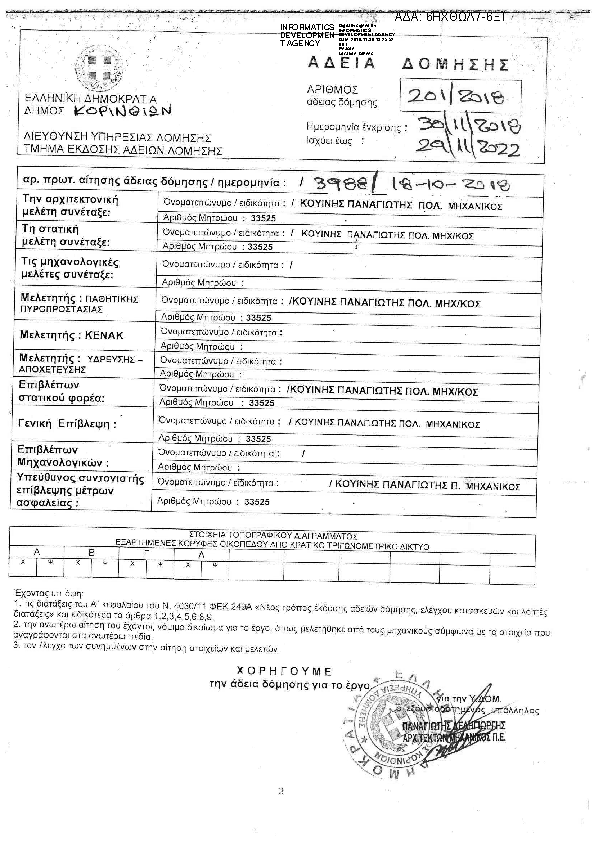 ΑΔΑ: 6ΗΧΘΩΛ7-6ΞΤ
INFORMATICS
DEVELOPMEN
T AGENCY
ΑΔΕΙΑ ΔΟΜΗΣΗΣ
ΕΛΛΗΝΙΚΗ ΔΗΜΟΚΡΑΤΙΑ
ΔΗΜΟΣ ΚΟΡΙΝΘΙΩΝ
ΔΙΕΥΘΥΝΣΗ ΥΠΗΡΕΣΙΑΣ ΔΟΜΗΣΗΣ
ΤΜΗΜΑ ΕΚΔΟΣΗΣ ΑΔΕΙΩΝ ΔΟΜΗΣΗΣ
ΑΡΙΘΜΟΣ
άδειας δόμησης 201/2018
Ημερομηνία έγκρισης : 30/11/2018
Ισχύει έως : 29/11/2022
αρ. πρωτ. αίτησης άδειας δόμησης / ημερομηνία : / 3988/ 18-10-2018
Την αρχιτεκτονική μελέτη συνέταξε:
Ονοματεπώνυμο / ειδικότητα : / ΚΟΥΙΝΗΣ ΠΑΝΑΓΙΩΤΗΣ ΠΟΛ. ΜΗΧΑΝΙΚΟΣ
Αριθμός Μητρώου : 33525
Τη στατική μελέτη συνέταξε:
Ονοματεπώνυμο / ειδικότητα : / ΚΟΥΙΝΗΣ ΠΑΝΑΓΙΩΤΗΣ ΠΟΛ. ΜΗΧ/ΚΟΣ
Αριθμός Μητρώου : 33525
Τις μηχανολογικές μελέτες συνέταξε:
Ονοματεπώνυμο / ειδικότητα : /
Αριθμός Μητρώου :
Μελετητής : ΠΑΘΗΤΙΚΗΣ ΠΥΡΟΠΡΟΣΤΑΣΙΑΣ
Ονοματεπώνυμο / ειδικότητα : /ΚΟΥΙΝΗΣ ΠΑΝΑΓΙΩΤΗΣ ΠΟΛ. ΜΗΧ/ΚΟΣ
Αριθμός Μητρώου : 33525
Μελετητής : ΚΕΝΑΚ
Ονοματεπώνυμο / ειδικότητα :
Αριθμός Μητρώου :
Μελετητής : ΥΔΡΕΥΣΗΣ – ΑΠΟΧΕΤΕΥΣΗΣ
Ονοματεπώνυμο / ειδικότητα :
Αριθμός Μητρώου :
Επιβλέπων στατικού φορέα:
Ονοματεπώνυμο / ειδικότητα : /ΚΟΥΙΝΗΣ ΠΑΝΑΓΙΩΤΗΣ ΠΟΛ. ΜΗΧ/ΚΟΣ
Αριθμός Μητρώου : 33525
Γενική Επίβλεψη :
Ονοματεπώνυμο / ειδικότητα : /ΚΟΥΙΝΗΣ ΠΑΝΑΓΙΩΤΗΣ ΠΟΛ. ΜΗΧΑΝΙΚΟΣ
Αριθμός Μητρώου : 33525
Επιβλέπων Μηχανολογικών :
Ονοματεπώνυμο / ειδικότητα : /
Αριθμός Μητρώου :
Υπεύθυνος συντονιστής επίβλεψης μέτρων ασφαλείας :
Ονοματεπώνυμο / ειδικότητα : / ΚΟΥΙΝΗΣ ΠΑΝΑΓΙΩΤΗΣ Π. ΜΗΧΑΝΙΚΟΣ
Αριθμός Μητρώου : 33525
ΣΤΟΙΧΕΙΑ ΤΟΠΟΓΡΑΦΙΚΟΥ ΔΙΑΓΡΑΜΜΑΤΟΣ
ΕΞΑΡΤΗΜΕΝΕΣ ΚΟΡΥΦΕΣ ΟΙΚΟΠΕΔΟΥ ΑΠΟ ΚΡΑΤΙΚΟ ΤΡΙΓΩΝΟΜΕΤΡΙΚΟ ΔΙΚΤΥΟ
Α Β Γ Δ
Χ Ψ Χ Ψ Χ Ψ Χ Ψ
Έχοντας υπόψη:
1. τις διατάξεις του Α΄ κεφαλαίου του Ν. 4030/11 ΦΕΚ 249Α «Νέος τρόπος έκδοσης αδειών δόμησης, ελέγχου κατασκευών και λοιπές
διατάξεις» και ειδικότερα τα άρθρα 1,2,3,4,5,6,8,9
2. την ανωτέρω αίτηση του έχοντος νόμιμο δικαίωμα για το έργο, όπως μελετήθηκε από τους μηχανικούς σύμφωνα με τα στοιχεία που
αναγράφονται στα ανωτέρω πεδία
3. τον έλεγχο των συνημμένων στην αίτηση στοιχείων και μελετών
ΧΟΡΗΓΟΥΜΕ
την άδεια δόμησης για το έργο
για την Υ.ΔΟΜ.
ο εξουσιοδοτημένος υπάλληλος
ΠΑΝΑΓΙΩΤΗΣ ΔΕΛΗΓΙΩΡΓΗΣ
ΑΡΧΙΤΕΚΤΩΝ ΜΗΧΑΝΙΚΟΣ Π.Ε.